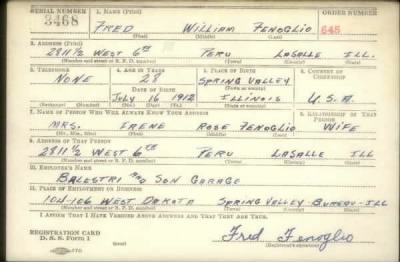 SERIAL NUMBER 1. NAME (Print) ORDER NUMBER
3468 FRED WILLIAM FENOGLIO 645
(First) (Middle) (Last)
2. ADDRESS (Print)
2811 1/2 WEST 6th PERU LASALLE ILL.
(Number and street or R. F. D. number) (Town) (County) (State)
3. TELEPHONE 4. AGE IN YEARS 5. PLACE OF BIRTH 6. COUNTRY OF CITIZENSHIP
NONE 28 SPRING VALLEY
DATE OF BIRTH
JULY 16 1912 ILLINOIS U.S.A.
(Mo.) (Day) (Yr.) (State or country)
7. NAME OF PERSON WHO WILL ALWAYS KNOW YOUR ADDRESS 8. RELATIONSHIP OF THAT PERSON
MRS. IRENE ROSE FENOGLIO WIFE
(Mr., Mrs., Miss) (First) (Middle) (Last)
9. ADDRESS OF THAT PERSON
2811 1/2 WEST 6th PERU LASALLE ILL
(Number and street or R. F. D. number) (Town) (County) (State)
10. EMPLOYER'S NAME
BALESTRI AND SON GARAGE
11. PLACE OF EMPLOYMENT OR BUSINESS
104-106 WEST DAKOTA SPRING VALLEY BUREAU-ILL
(Number and street or R. F. D. number) (Town) (County) (State)
I AFFIRM THAT I HAVE VERIFIED ABOVE ANSWERS AND THAT THEY ARE TRUE.
REGISTRATION CARD
D. S. S. Form 1 Fred Fenoglio
(Registrant's signature)